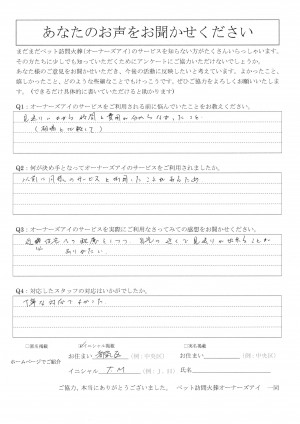 あなたのお声をお聞かせください
まだまだペット訪問火葬(オーナーズアイ)のサービスを知らない方がたくさんいらっしゃいます。
その方たちに少しでも知っていただくためにアンケートにご協力いただけないでしょうか。
あなた様のご意見をお聞かせいただき、今後の活動に反映したいと考えています。よかったこと、
嬉しかったこと、どのような些細なことでもけっこうです。ぜひご協力をよろしくお願いいたします。
(できるだけ具体的に書いていただけると助かります)
Q1：オーナーズアイのサービスをご利用される前に悩んでいたことをお教えください。
時間と費用が分からなかったこと
Q2：何が決め手となってオーナーズアイのサービスをご利用されましたか。
以前に同様のサービスを利用したことがあるため
Q3：オーナーズアイのサービスを実際にご利用なさってみての感想をお聞かせください。
自宅の近くで見送りが出来ることは
ありがたい。
Q4：対応したスタッフの対応はいかがでしたか。
丁寧な対応でよかった。
ホームページでご紹介
イニシャル掲載
実名掲載
お住まい
(例：中央区)
お住まい
(例：中央区)
イニシャル T M (例：J. H)
氏名
ご協力、本当にありがとうございました。 ペット訪問火葬オーナーズアイ 一同